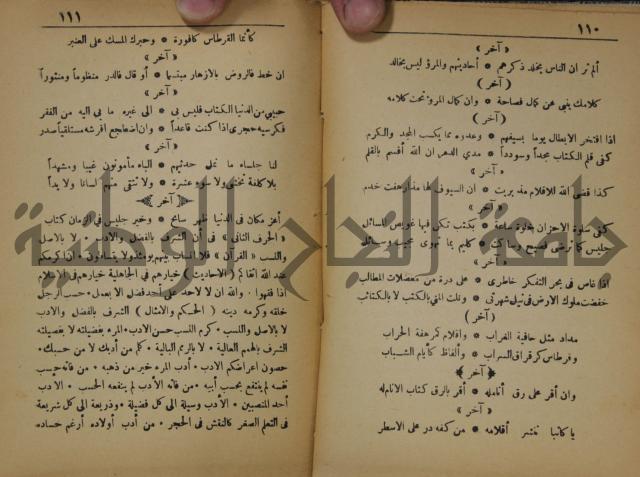 ١١٠
« آخر »
ألم تر ان الناس يخلد ذكرهم * أحاديثهم والمرؤ ليس بخالد
( آخر )
كلامك ينبي عن كمال فصاحة * وان كمال المرؤ تحت كلامه
( آخر )
اذا افتخر الابطال يوما بسيفهم * وعدوه مما يكسب المجد والكرم
كفى قلم الكتاب مجداً وسودداً * مدي الدهر ان الله أقسم بالقلم
« آخر »
كذا قضى الله للاقلام مذ بريت * ان السيوف لها مذ أرهفت خدم
« آخر »
كفى سلوة الاحزان خلوة ساعة * بكتب تكن فيها غويص المسائل
جليس كما ترضى فصيح وساكت * كليم بما تهوى مجيب وسائل
« آخر »
اذا غاص في بحر التفكر خاطرى * على درة من معضلات المطالب
خفضت ملوك الارض في نيل شهرتي * ونلت المني بالكتب لا بالكتائب
( آخر )
مداد مثل خافية الغراب * واقلام كمرهفة الحراب
وقرطاس كرقراق السراب * وألفاظ كأيام الشباب
« آخر »
وان أقر على رق أنامله * أقر بالرق كتاب الانام له
« آخر »
ياكاتبا تنتثر أقلامه * من كفه در على الاسطر
١١١
كأنما القرطاس كافورة * وحبرك المسك على العنبر
« آخر »
ان خط فالروض بالازهار مبتسما * أو قال فالدر منظوماً ومنثوراً
« آخر »
حبيبي من الدنيا الكتاب فليس بي * الى غيره ما بي اليه من الفقر
فكرسيه حجرى اذا كنت قاعداً * وان اضطجع افرشه مستلقيا صدر
« آخر »
لنا جلساء ما نمل حديثهم * ألباء مأمونون غيبا ومشهداً
بلا كلفة تخشى ولا سوء عشرة * ولا نتقى منهم لسانا ولا يداً
« آخر »
أعز مكان في الدنيا ظهر سابح * وخير جليس في الزمان كتاب
« الحرف الثانى » في أن الشرف بالفضل والادب * لا بالاصل
والنسب « القرآن » فلا انساب بينهم يومئذ ولا يتساءلون * ان اكرمكم
عند الله أتقاكم ( الاحاديث ) خيارهم في الجاهلية خيارهم في الاسلام
اذا فقهوا * والله ان لا لاحد على أحد فضل الا بعمل * حسب الرجل
خلقه وكرمه دينه ( الحكم والامثال ) الشرف بالفضل والادب
لا بالاصل والنسب * كرم النسب حسن الادب * المرء بفضيلته لا بفصيلته
الشرف بالهمم العالية * لا بالرمم البالية * كلم من أدبك لا من حسبك *
حصون اعراضكم الادب * أدب المرء خير من ذهبه * من فاته حسب
نفسه لم ينتفع بحسب أبيه * من فاته الأدب لم ينفعه الحسب * الادب
أحد المنصبين * الأدب وسيلة الى كل فضيلة * وذريعة الى كل شريعة
في التعلم الصغر كالنقش في الحجر * من أدب أولاده أرغم حساده
جامعة النجاح الوطنية